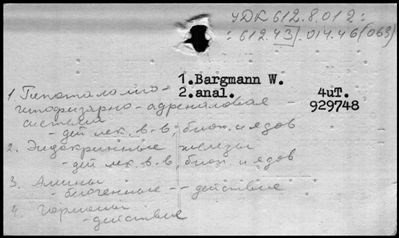 УДК 612.8.012:
:612.43].014.46(063)
1.Bargmann W.
2.anal.
4uT.
929748
1 Гипоталамо-
гипофизарно-адреналовая
система
- дей лек. в-в, биол. и ядов
2. Эндокринные железы
- дей лек. в-в, биол. и ядов
3. Амины
биогенные -- действие
4. Гормоны
- действие